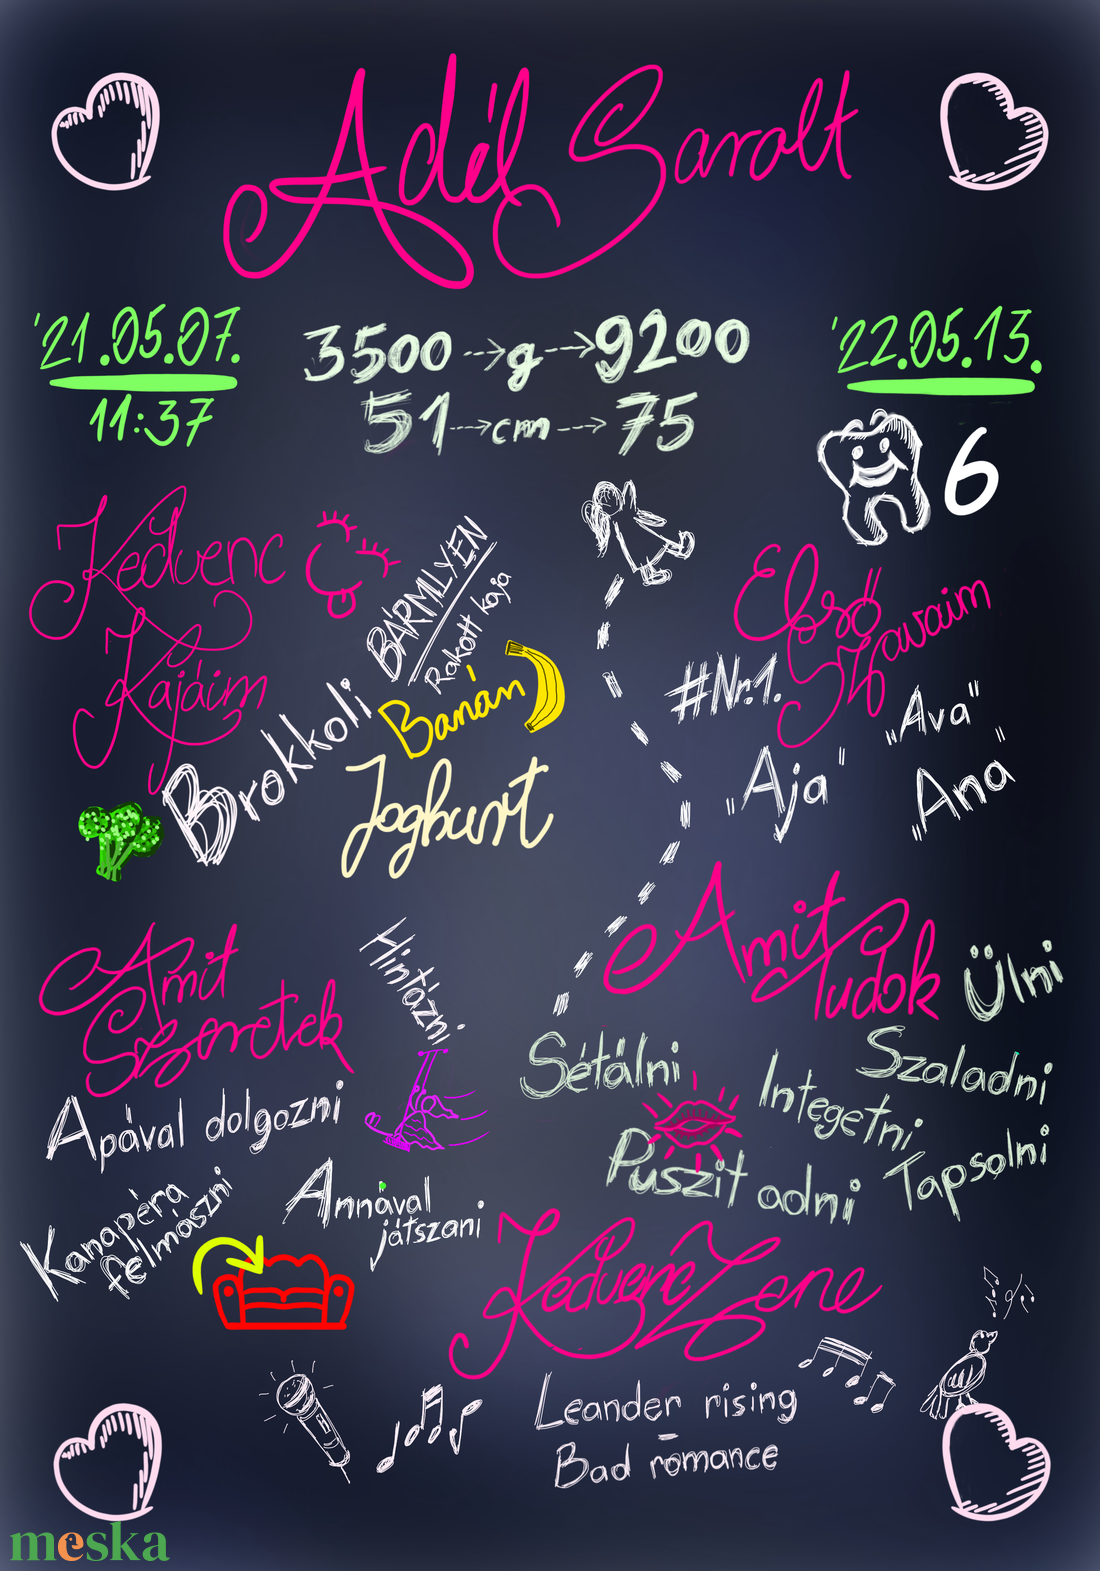 Adél Sarolt
'21.05.07.
11:37
3500 --> g --> 9200
51 --> cm --> 75
'22.05.13.
6
Kedvenc
Kajáim
BÁRMILYEN
Rakott kaja
Banán
Brokkoli
Joghurt
Első
Szavaim
#Nr.1.
„Ava"
„Aja"
„Ana"
Amit
Szeretek
Hintázni
Apával dolgozni
Kanapéra
felmászni
Annával
játszani
Amit
tudok
Ülni
Sétálni
Szaladni
Integetni
Puszit adni
Tapsolni
Kedvenc Zene
Leander rising
-
Bad romance
meska